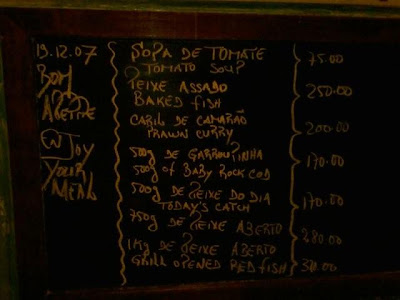 19.12.07
BOM
APETITE
N JOY
YOUR
MEAL
SOPA DE TOMATE
TOMATO SOUP
75.00
PEIXE ASSADO
BAKED FISH
250.00
CARIL DE CAMARÃO
PRAWN CURRY
200.00
500g DE GARROUPINHA
500g OF BABY ROCK COD
170.00
500g DE PEIXE DO DIA
TODAY'S CATCH
170.00
750g DE PEIXE ABERTO
280.00
1Kg DE PEIXE ABERTO
GRILL OPENED RED FISH